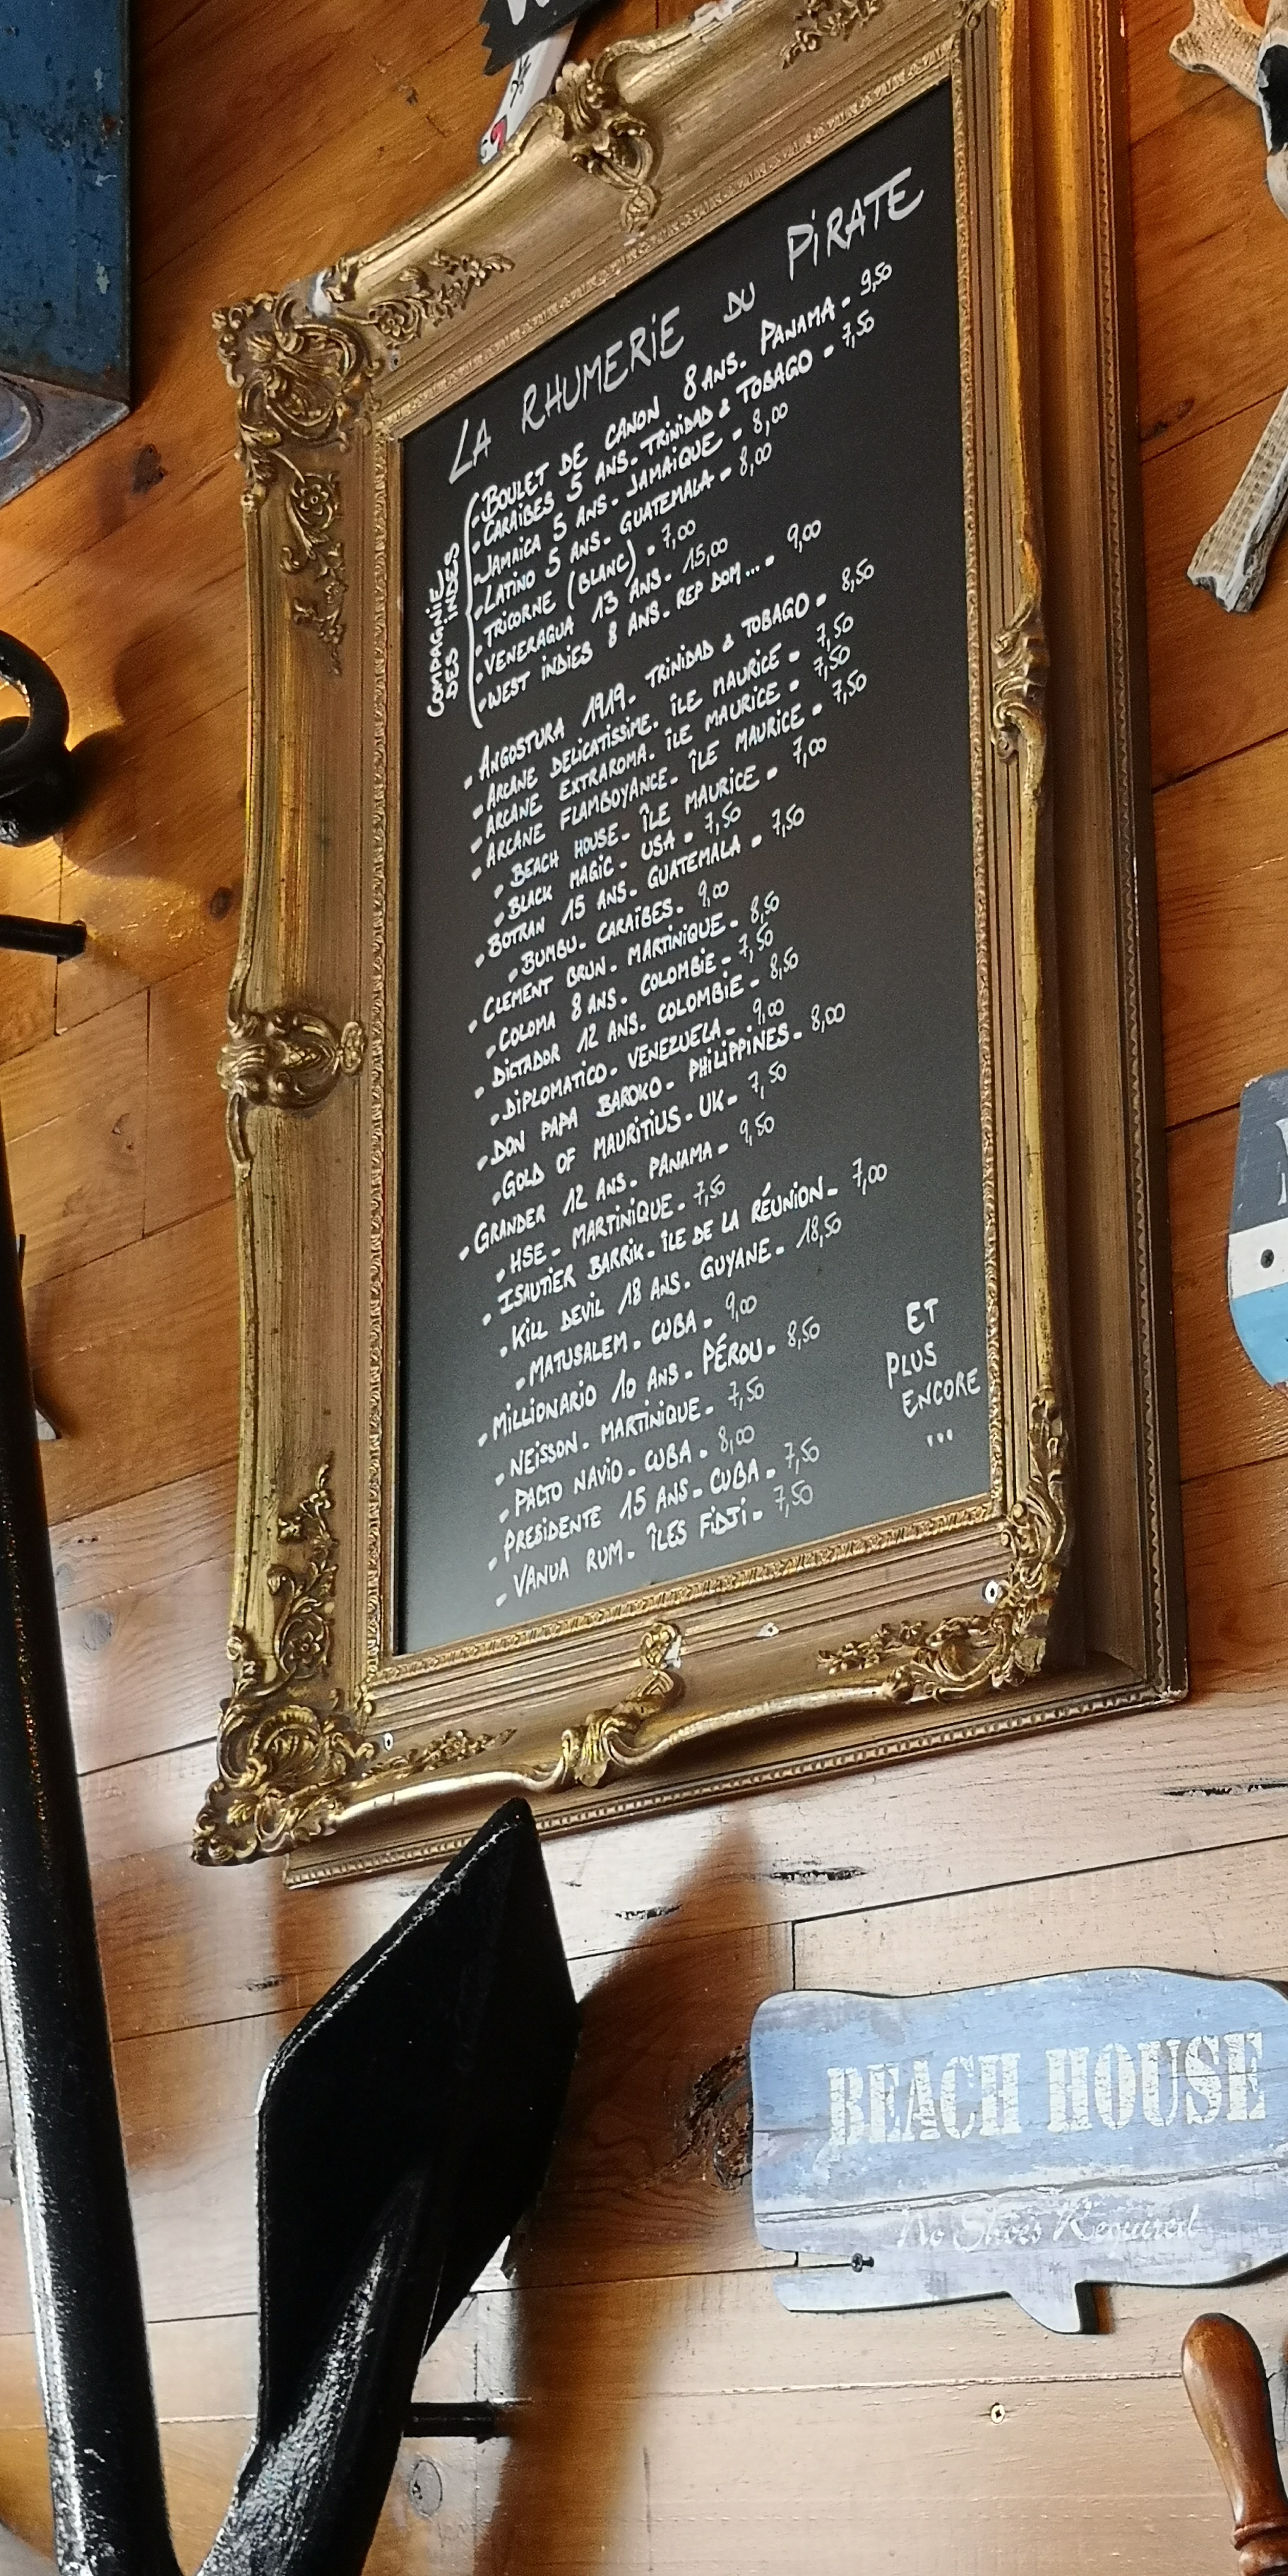 LA RHUMERIE DU PIRATE
COMPAGNIE
DES INDES
- BOULET DE CANON 8 ANS. PANAMA - 9,50
- CARAÏBES 5 ANS. TRINIDAD & TOBAGO - 7,50
- JAMAICA 5 ANS - JAMAÏQUE - 8,00
- LATINO 5 ANS. GUATEMALA - 8,00
- TRICORNE (BLANC) - 7,00
- VENERAGUA 13 ANS. 15,00
- WEST INDIES 8 ANS. REP DOM... - 9,00
- ANGOSTURA 1919. TRINIDAD & TOBAGO - 8,50
- ARCANE DELICATISSIME. ÎLE MAURICE - 7,50
- ARCANE EXTRAROMA. ÎLE MAURICE - 7,50
- ARCANE FLAMBOYANCE. ÎLE MAURICE - 7,50
- BEACH HOUSE - ÎLE MAURICE - 7,00
- BLACK MAGIC - USA - 7,50
- BOTRAN 15 ANS. GUATEMALA - 7,50
- BUMBU. CARAÏBES. 9,00
- CLEMENT BRUN. MARTINIQUE - 8,50
- COLOMA 8 ANS. COLOMBIE - 7,50
- DICTADOR 12 ANS. COLOMBIE - 8,50
- DIPLOMATICO - VENEZUELA - 9,00
- DON PAPA BAROKO - PHILIPPINES - 8,00
- GOLD OF MAURITIUS - UK - 7,50
- GRANDER 12 ANS. PANAMA - 9,50
- HSE - MARTINIQUE - 7,50
- ISAUTIER BARRIK - ÎLE DE LA RÉUNION - 7,00
- KILL DEVIL 18 ANS. GUYANE - 18,50
- MATUSALEM - CUBA - 9,00
- MILLIONARIO 10 ANS - PÉROU - 8,50
- NEISSON. MARTINIQUE - 7,50
- PACTO NAVIO - CUBA - 8,00
- PRESIDENTE 15 ANS - CUBA - 7,50
- VANUA RUM. ÎLES FIDJI - 7,50
ET
PLUS
ENCORE
...
BEACH HOUSE
No Shoes Required